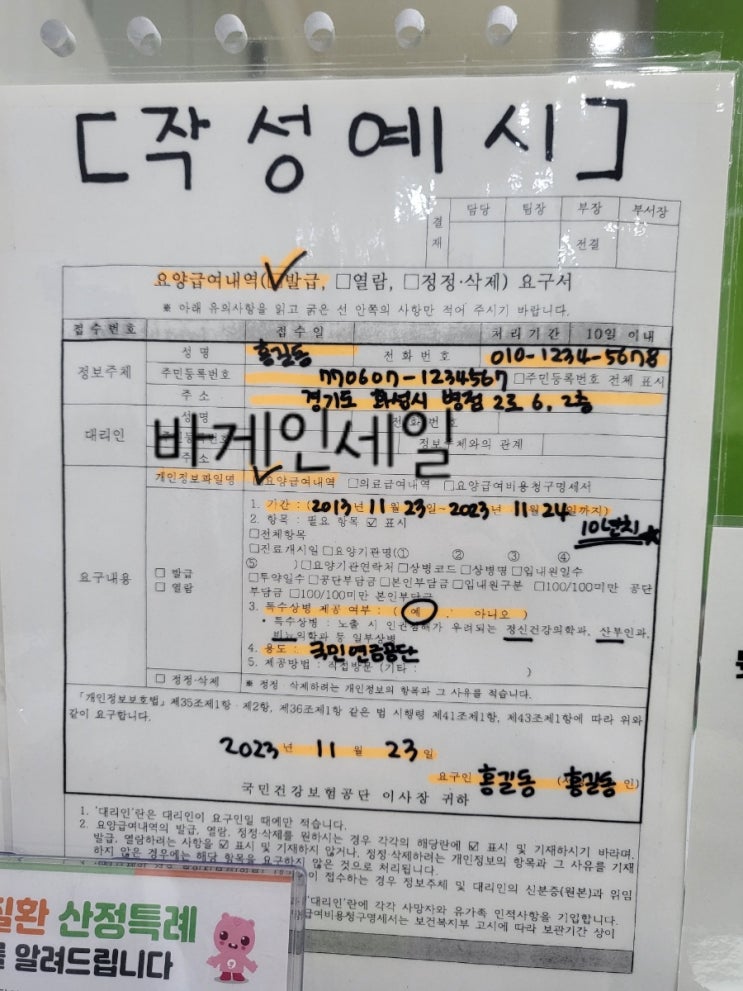 [작성예시]
결재 담당 팀장 부장 부서장
전결
요양급여내역(☑발급, □열람, □정정·삭제) 요구서
※ 아래 유의사항을 읽고 굵은 선 안쪽의 사항만 적어 주시기 바랍니다.
접수번호 접수일 처리기간 10일 이내
정보주체 성명 홍길동 전화번호 010-1234-5678
주민등록번호 770607-1234567 □주민등록번호 전체 표시
주소 경기도 화성시 병점 2로 6, 2층
대리인 성명 전화번호
정보주체와의 관계
주소
바게인세일
개인정보파일명 ☑요양급여내역 □의료급여내역 □요양급여비용청구명세서
요구내용 □ 발급 □ 열람
1. 기간 : (2013년 11월 23일~2023년 11월 24일까지)
10년치★
2. 항목 : 필요 항목 ☑ 표시
□전체항목
□진료개시일 □요양기관명(① ② ③ ④
⑤ ) □요양기관연락처 □상병코드 □상병명 □입내원일수
□투약일수 □공단부담금 □본인부담금 □입내원구분 □100/100미만 공단
부담금 □100/100미만 본인부담금
3. 특수상병 제공 여부 : ( 예 , 아니오 )
• 특수상병 : 노출 시 인권침해가 우려되는 정신건강의학과, 산부인과,
비뇨의학과 등 일부상병
4. 용도 : 국민연금공단
5. 제공방법 : 직접방문 (기타 : )
□ 정정·삭제 ※ 정정 삭제하려는 개인정보의 항목과 그 사유를 적습니다.
「개인정보보호법」 제35조제1항 · 제2항, 제36조제1항 같은 법 시행령 제41조제1항, 제43조제1항에 따라 위와
같이 요구합니다.
2023년 11월 23일
요구인 홍길동 (홍길동 인)
국민건강보험공단 이사장 귀하
1. '대리인'란은 대리인이 요구인일 때에만 적습니다.
2. 요양급여내역의 발급, 열람, 정정·삭제를 원하시는 경우 각각의 해당란에 ☑ 표시 및 기재하시기 바라며,
발급, 열람하려는 사항을 ☑ 표시 및 기재하지 않거나, 정정·삭제하려는 개인정보의 항목과 그 사유를 기재
하지 않은 경우에는 해당 항목을 요구하지 않은 것으로 처리됩니다.
이 접수하는 경우 정보주체 및 대리인의 신분증(원본)과 위임
'대리인'란에 각각 사망자와 유가족 인적사항을 기입합니다.
급여비용청구명세서는 보건복지부 고시에 따라 보관기간 상이
질환 산정특례
를 알려드립니다